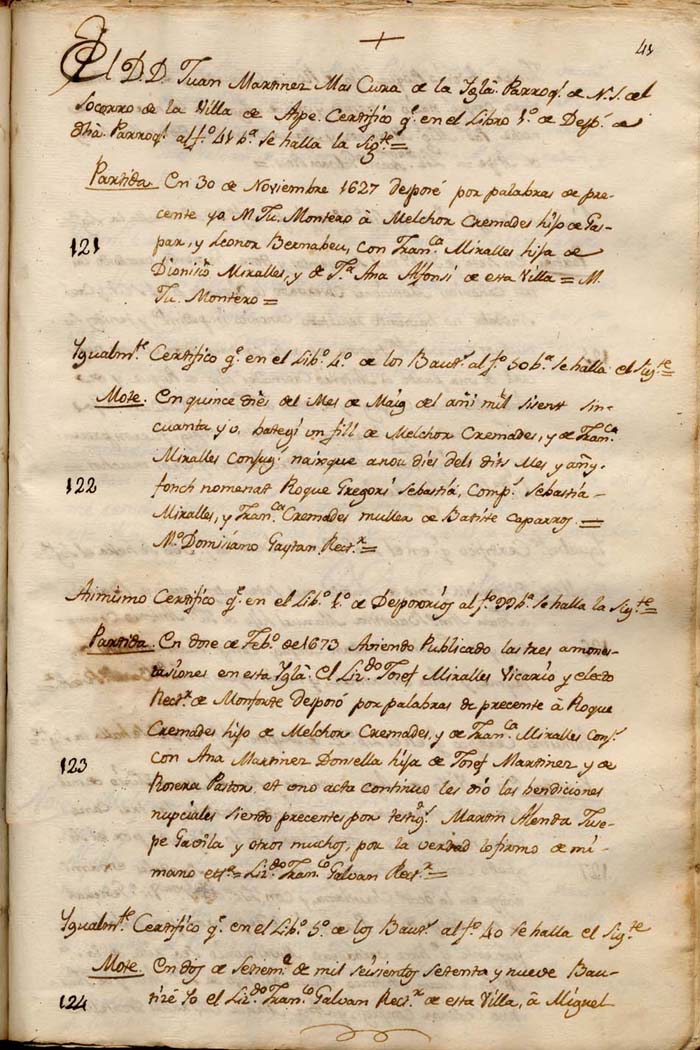 +
41
El D.D. Juan Martinez Mas Cura de la Yglã. Parroq.l de N.S. del
Socorro de la Villa de Aspe. Certifico q.e en el Libro 1.º de Desp.s de
dhã. Parroq.l al f.º 41 b.ta se halla la Sig.te =
Partida. En 30 de Noviembre 1627 desposé por palabras de pre-
cente yo M. Ju. Montero â Melchor Cremades hijo de Gas-
par, y Leonor Bernabeu, con Fran.ca Miralles hija de
121
Dionisio Miralles, y de J.ª Ana Alfonsi de esta Villa = M.
Ju. Montero =
Ygualm.te Certifico q.e en el Lib.º 4.º de los Baut.s al f.º 50 b.ta se halla el Sig.te =
Mote. En quince dies del Mes de Maig del añi mil sisent sin-
cuanta y o. bategi un fill de Melchor Cremades, y de Fran.ca
Miralles Conjug.s naixque a nou dies dels dits Mes y añy,
122
fonch nomenat Roque Gregori Sebastiá, Comp.s Sebastiá
Miralles, y Fran.ca Cremades muller de Batiste Caparros =
M.º Domisiano Gaytan Rect.r =
Asimismo Certifico q.e en el Lib.º 1.º de Desposorios al f.º 99 b.ta se halla la Sig.te =
Partida. En dose de Feb.º de 1673 Aviendo Publicado las tres amones-
tasiones en esta Yglã. El Liz.do Josef Miralles Vicario y electo
Rect.r de Monforte desposó por palabras de precente â Roque
Cremades hijo de Melchor Cremades, y de Fran.ca Miralles Conj.s
123
con Ana Martinez Donsella hija de Josef Martinez y de
Rosera Pastor, et uno acta continuo les dio las bendiciones
nupciales siendo precentes por testig.s Martin Alenda Juse-
pe Gavila y otros muchos, por la verdad lo firmo de mi
mano etc.ª = Liz.do Fran.co Galvan Rect.r =
Ygualm.te Certifico q.e en el Lib.º 5.º de los Baut.s al f.º 40 se halla el Sig.te
Mote. En dos de Setiem.e de mil seisientos setenta y nueve Bau-
124
tizé Yo el Liz.do Fran.co Galvan Rect.r de esta Villa, â Miguel